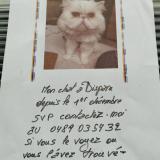 Mon chat à Disparu
depuis le 1er décembre
SVP contactez-moi
au 0489 03 57 32
si vous le voyez ou
vous l'avez trouvé-